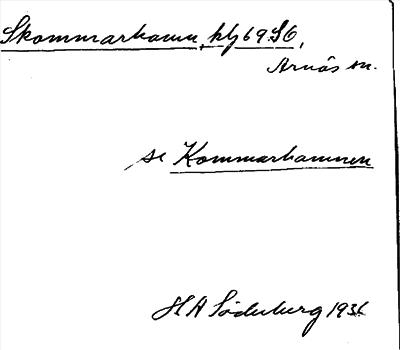 Skommarhamn, klj 69 S6,
Arnäs sn.
se Kommarhamnen
H A Söderberg 1936